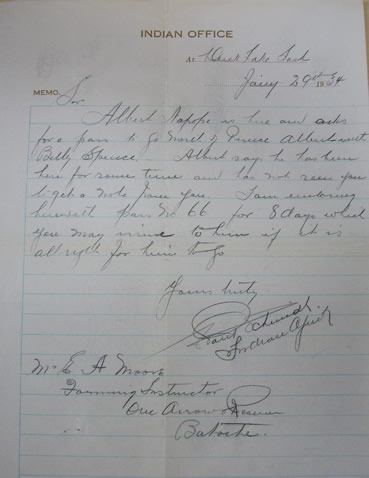 INDIAN OFFICE
At Duck Lake Sask
Jany 29th 1934
MEMO.
Sir
Albert Napope is here and asks
for a pass to go North of Prince Albert with
Billy Spence. Albert says he has been
here for some time and has not seen you
to get a note from you. I am enclosing
herewith pass No 66 for 8 days which
you may issue to him if it is
all right for him to go
Yours truly
Indian Agent
Mr E A Moore
Farming Instructor
One Arrows Reserve
Batoche.